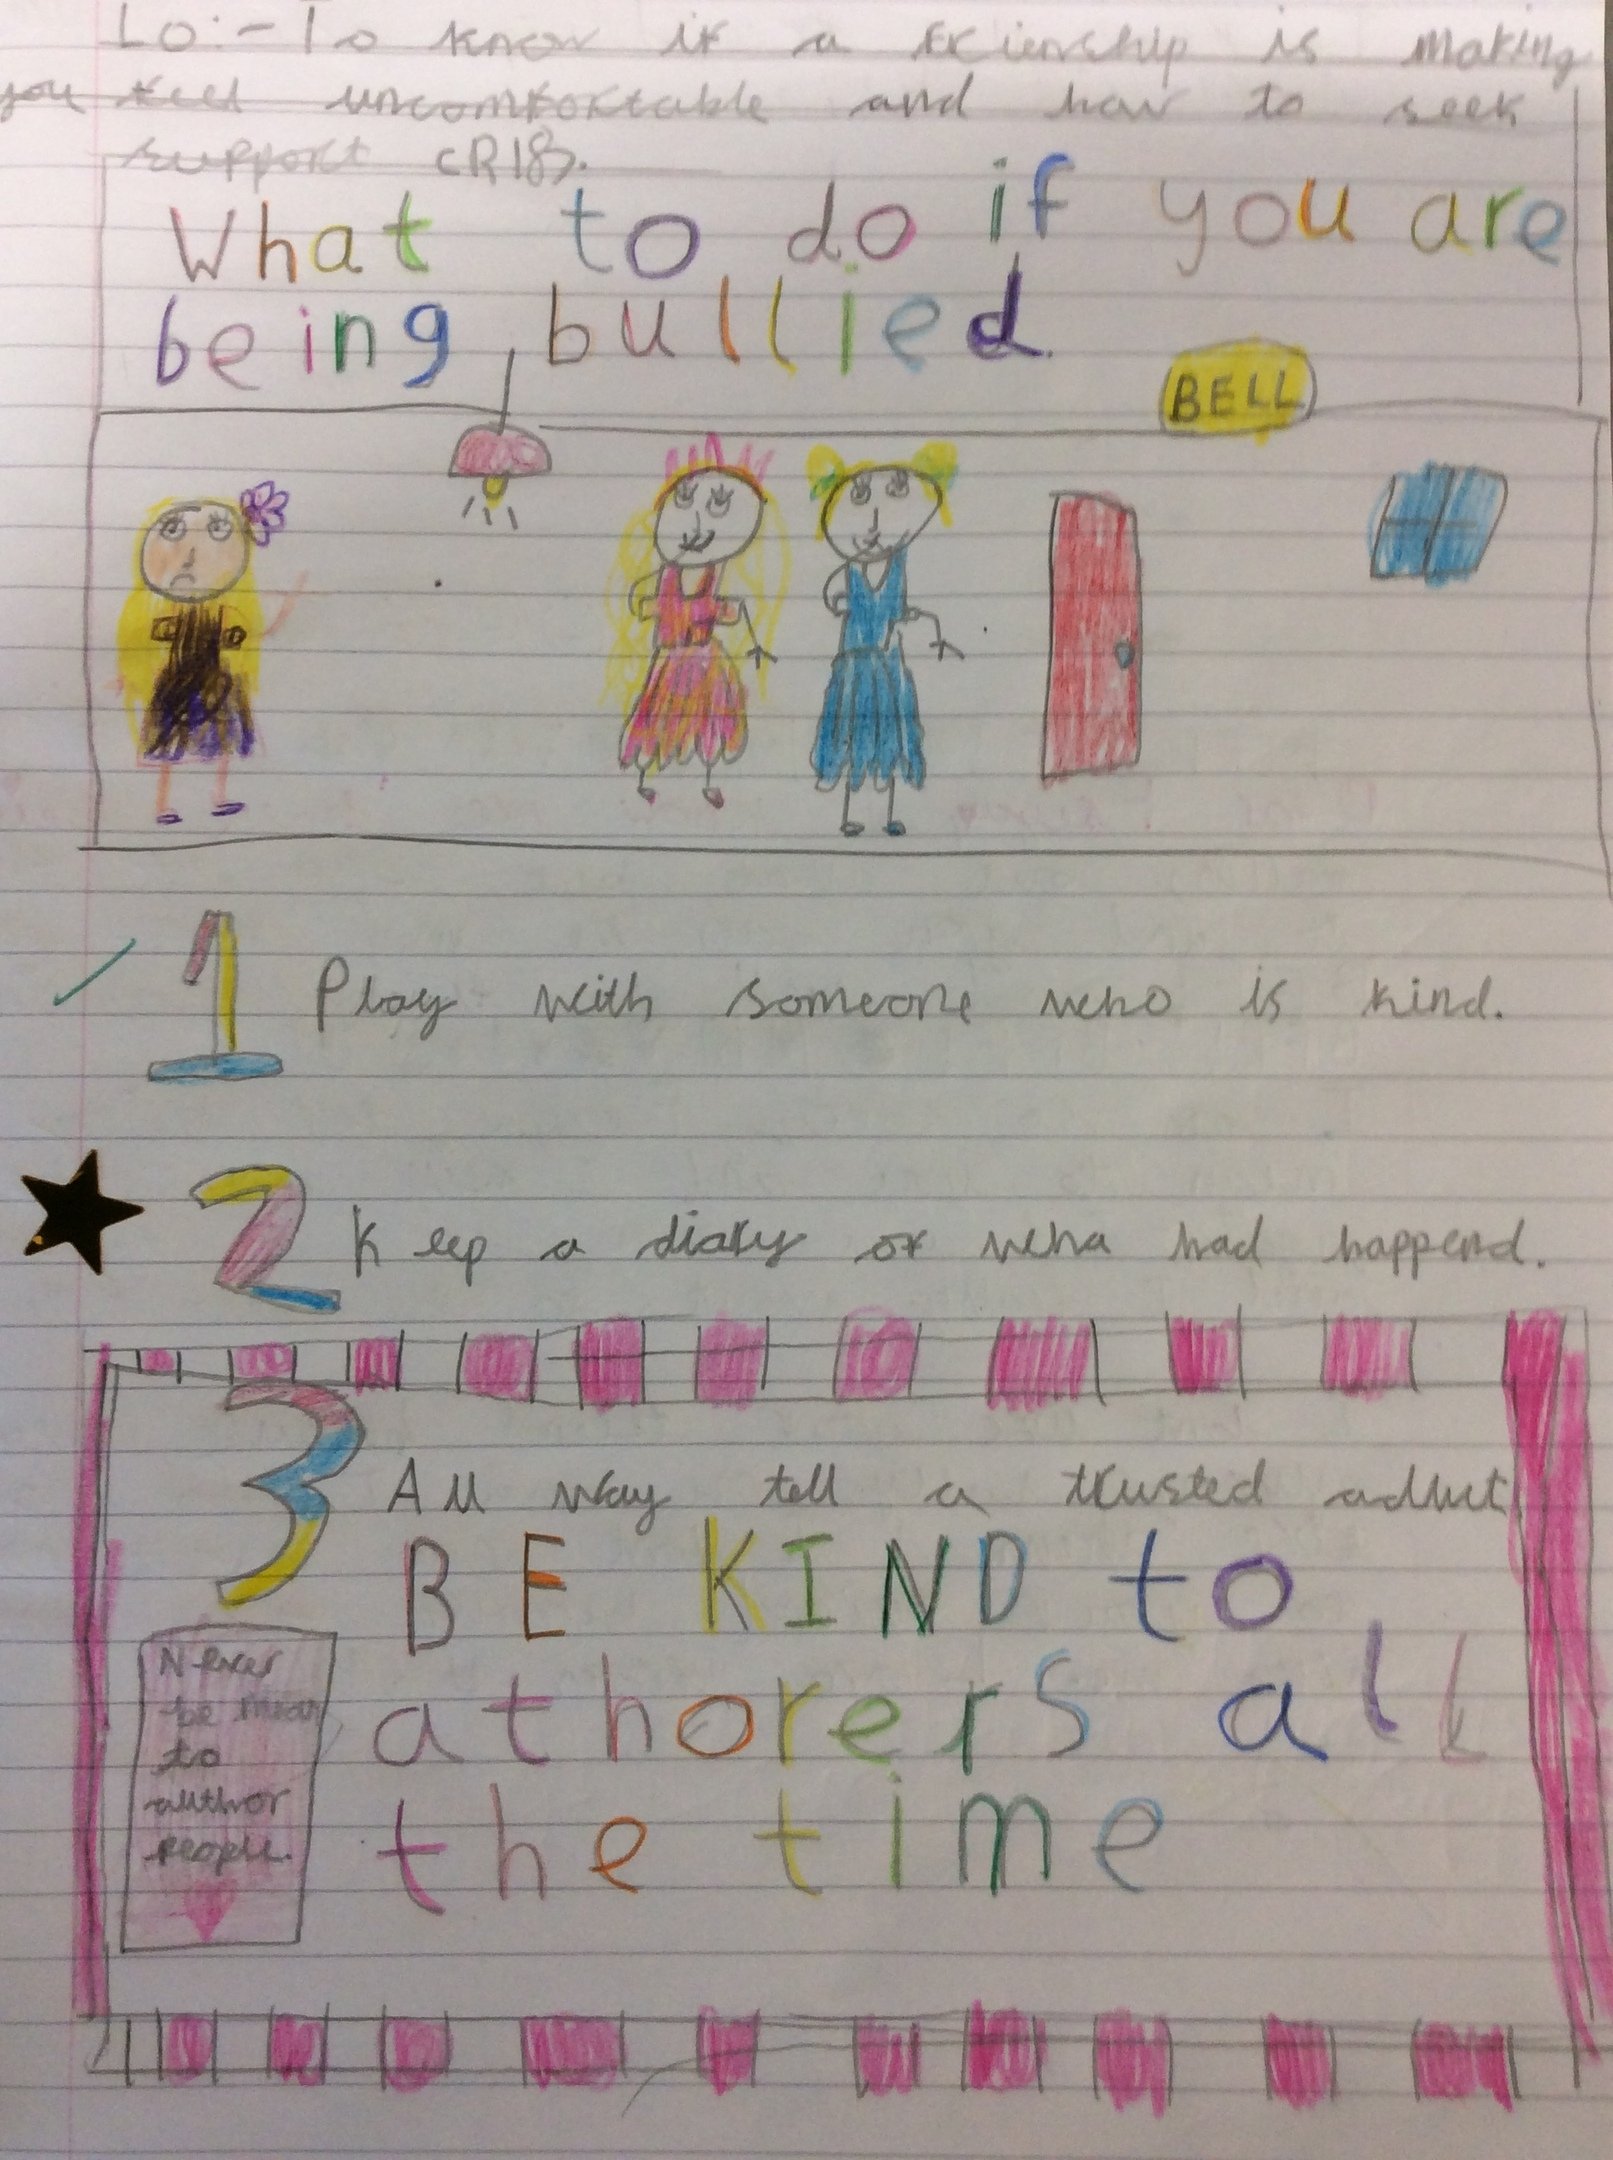 Lo:- To know if a frienship is making
you feel uncomfortable and how to seek
support (R18).
What to do if you are
being bullied.
BELL
1 Play with someone who is kind.
2 Keep a diary of wha had happend.
3 All way tell a trusted adlut
BE KIND to
athorers all
the time
Never
be mean
to
author
people.